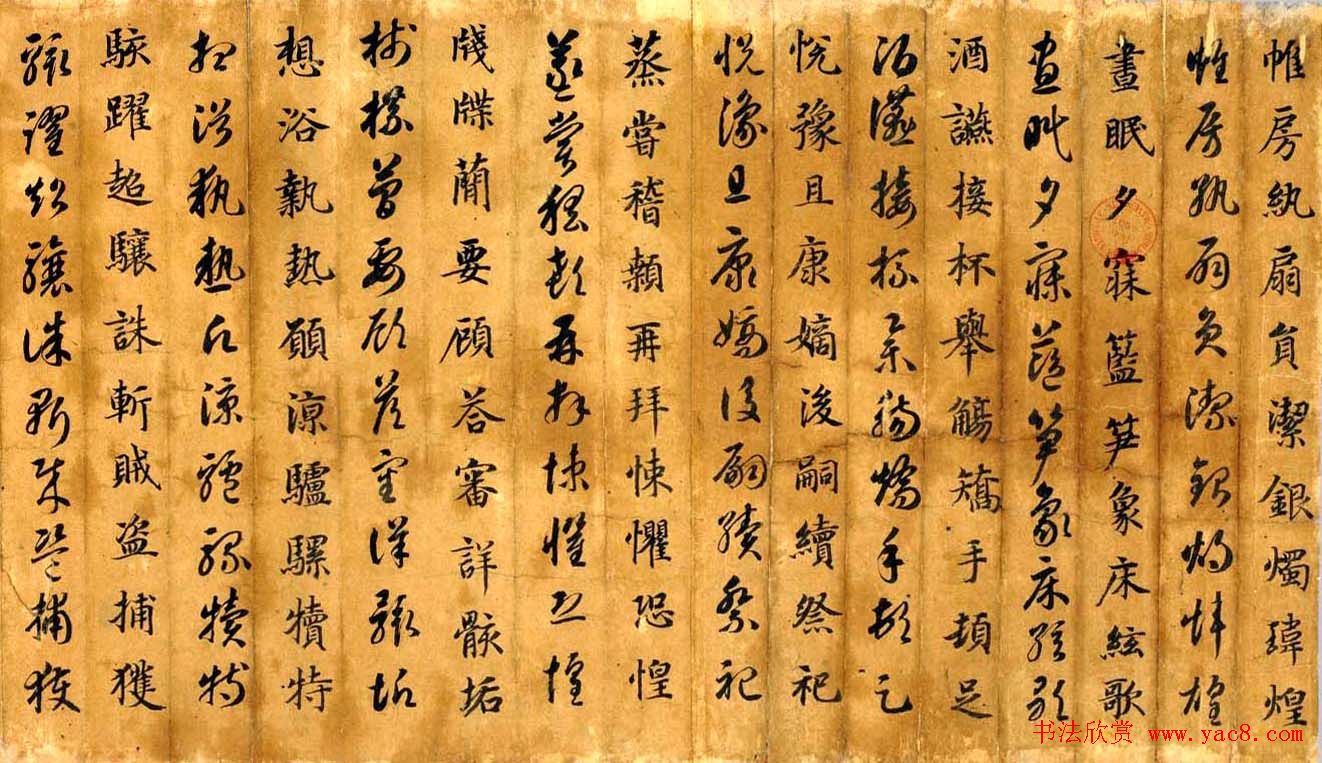 帷房紈扇貟潔銀燭瑋煌
帷房紈扇貟潔銀燭煒煌
晝眠夕寐籃笋象床絃歌
晝眠夕寐籃笋象床絃歌
酒讌接杯舉觴矯手頓足
酒讌接杯舉觴矯手頓足
悅豫且康嫡後嗣續祭祀
悅豫且康嫡後嗣續祭祀
蒸嘗稽顙再拜悚懼恐惶
蒸嘗稽顙再拜悚懼恐惶
牋牒蕳要顧荅審詳骸垢
牋牒蕳要顧荅審詳骸垢
想浴執熱願涼驢騾犢特
想浴執熱願涼驢騾犢特
駭躍超驤誅斬賊盜捕獲
駭躍超驤誅斬賊盜捕獲
书法欣赏 www.yac8.com